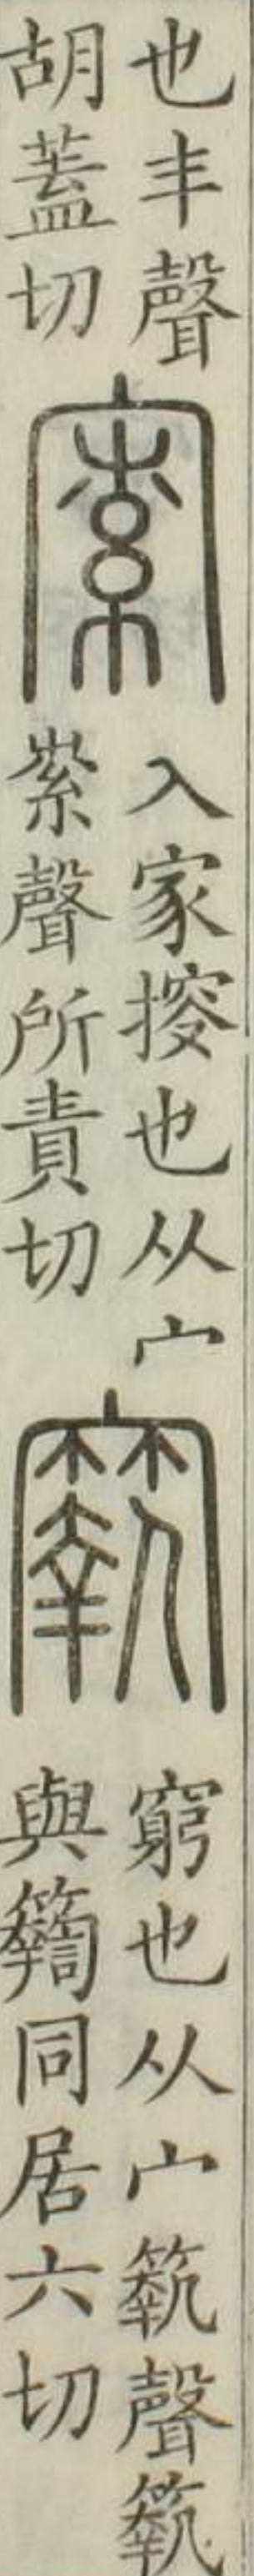 也丯聲
胡蓋切
𡩡
入家搜也从宀
索聲所責切
窮也从宀聲
與同居六切